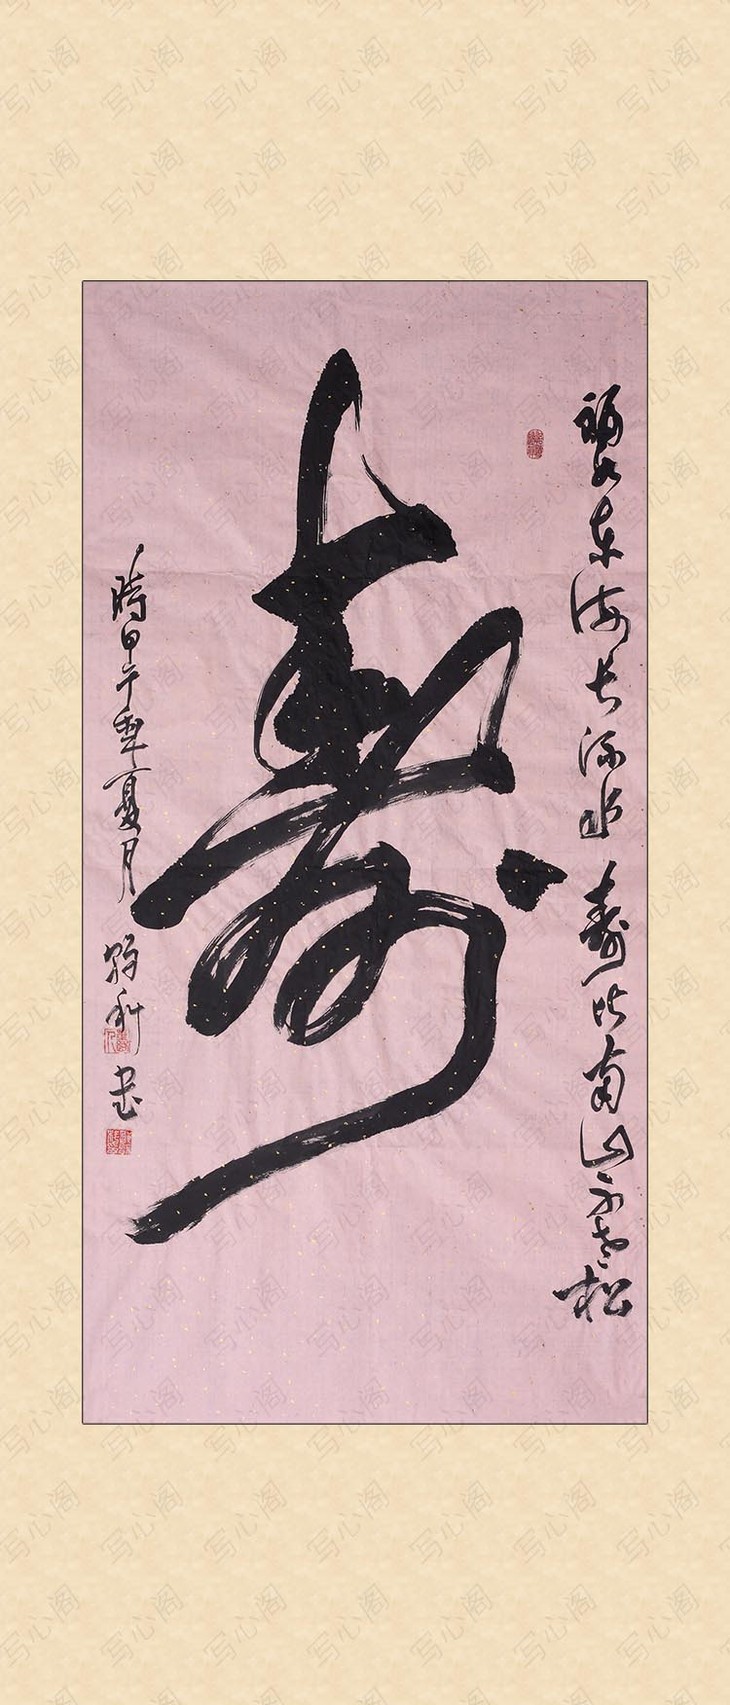 福如东海长流水寿比南山不老松
寿
時甲午年夏月
科書
写心阁